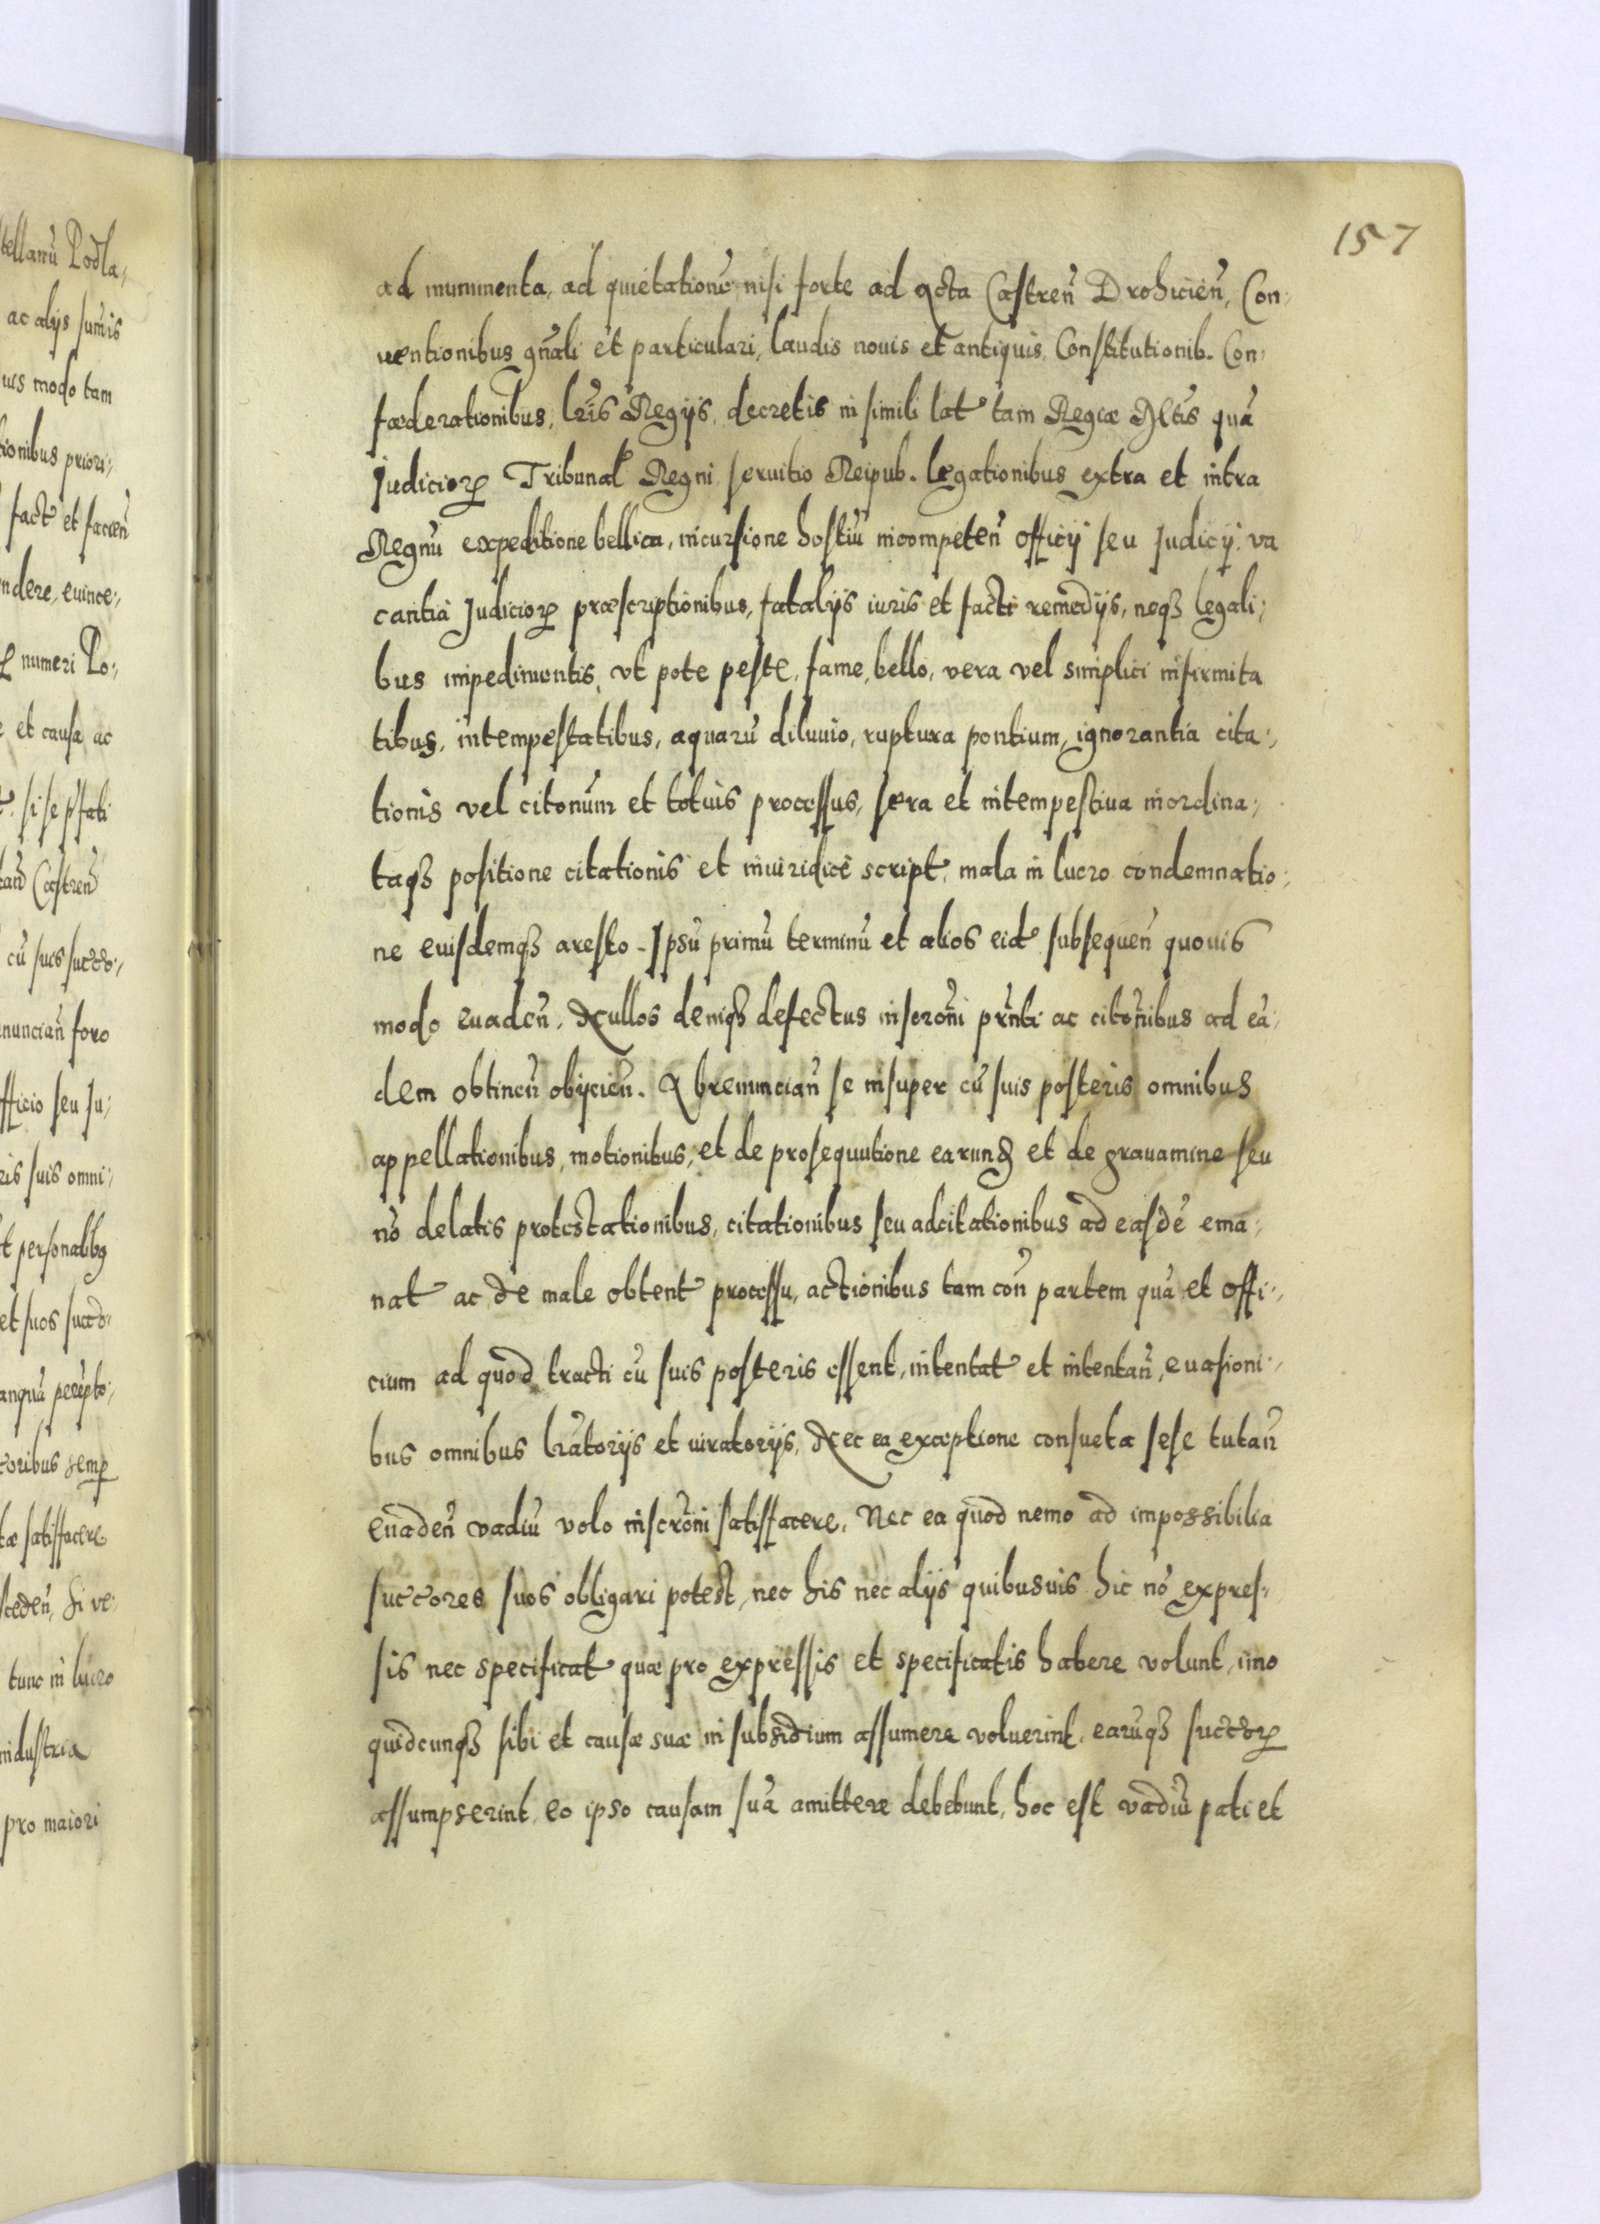 tellanũ Podla,
ac alijs sum̃is
uis modo tam
tionibus priori,
fact et facien̄
ndere, euince,
numeri Po,
et causa ac
si se pſati
Castren̄
cũ suis succo,
nuncian̄ foro
fficio seu Ju,
ris suis omni,
t personalibq
et suos succo,
anquã perepto,
coribus semp
tæ satisfacere
sceden̄, si ve,
tunc in lucro
industria
pro maiori
157
ad munimenta, ad quietationē nisi forte ad Acta Castren̄ Drohicien̄, Con,
uentionibus gn̄ali et particulari, laudis nouis et antiquis, Constitutionib. Con,
fœderationibus, lr̄is Regijs, decretis in simili lat tam Regiæ Mltis quã
Judicior Tribunal Regni, seruitio Reipub. legationibus extra et intra
Regnũ expeditione bellica, incursione hostiũ incompeten̄ Officij seu Judicij, va
cantia Judicior præscriptionibus, fatalijs iuris et facti remedijs, neqȝ legali,
bus impedimentis, vt pote peste, fame, bello, vera vel simplici infirmita
tibus, intempestatibus, aquarũ diluuio, ruptura pontium, ignorantia cita,
tionis vel citonūm et totius processus, sera et intempestiua inordina,
taqȝ positione citationis et inuiridice script, mala in lucro condemnatio,
ne eiusdemqȝ aresto. Ipsũ primũ terminũ et alios eid subsequen̄ quouis
modo euaden̄. Nullos deniqȝ defectus inscron̄i prn̄ti ac citon̄ibus ad eã,
dem obtinen̄ obijcien̄. Abrenuncian̄ se insuper cũ suis posteris omnibus
appellationibus, motionibus, et de prosequutione earund et de grauamine seu
nō delatis protestationibus, citationibus seu adcitationibus ad easdē ema,
nat ac de male obtent processu, actionibus tam con̄ partem quã et Offi,
cium ad quod tracti cũ suis posteris essent, intentat et intentan̄, euasioni,
bus omnibus lr̄atorijs et uiratorijs, Nec ea exceptione consueta sese tutan̄
euaden̄ vadiũ volo inscron̄i satisfacere, Nec ea quod nemo ad impossibilia
succores suos obligari potest, nec his nec alijs quibusuis hic nō expres,
sis nec specificat quæ pro expressis et specificatis habere volunt, imo
quidcunqȝ sibi et causæ suæ in subsidium assumere voluerint, earũqȝ succor
assumpserint, eo ipso causam suã amittere debebunt, hoc est vadiũ pati et